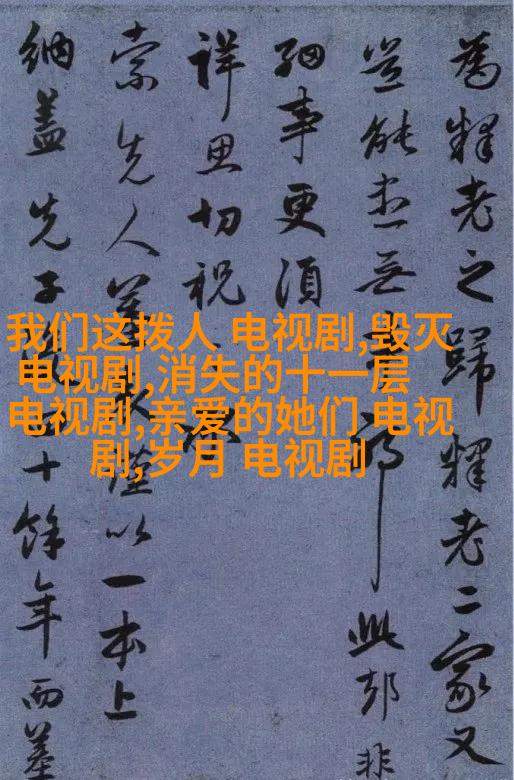 為釋老之歸釋老二家又
豈能盡無邪此却非
細事更須
詳思切祝
索先人謹以一本上
納蓋先子十餘年而墓
我们这拨人 电视剧,毁灭
电视剧,消失的十一层
电视剧,亲爱的她们 电视
剧,岁月 电视剧